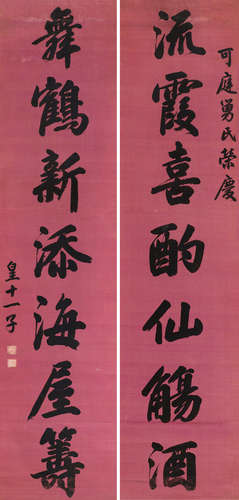 可庭勇氏榮慶
流霞喜酌仙觴酒
舞鶴新添海屋籌
皇十一子